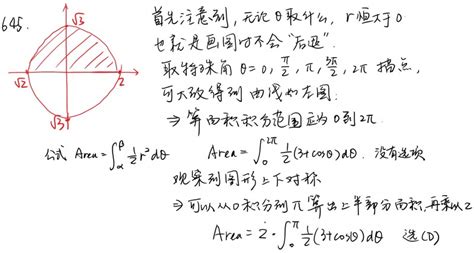 645.
√3
√2
2
√3
首先注意到, 无论θ取什么, r恒大于0
也就是画图时不会“后退”.
取特殊角 θ=0, π/2, π, 3π/2, 2π 描点,
可大致得到曲线如左图.
⇒ 算面积积分范围应为0到2π.
公式 Area=∫_α^β ½r²dθ Area=∫_0^{2π} ½(3+cosθ)dθ. 没有选项
观察到图形上下对称
⇒ 可以从0积分到π算出上半部分面积, 再乘以2
Area = 2·∫_0^π ½(3+cosθ)dθ 选(D)